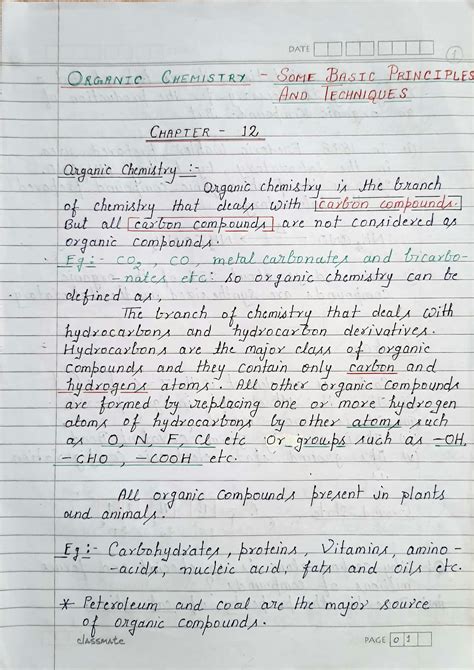 DATE
1
ORGANIC CHEMISTRY - SOME BASIC PRINCIPLES
AND TECHNIQUES
CHAPTER - 12
Organic Chemistry :-
Organic chemistry is the branch
of chemistry that deals with carbon compounds.
But all carbon compounds are not considered as
organic compounds.
Eg:- CO2, CO, metal carbonates and bicarbo-
-nates etc. So organic chemistry can be
defined as,
The branch of chemistry that deals with
hydrocarbons and hydrocarbon derivatives.
Hydrocarbons are the major class of organic
compounds and they contain only carbon and
hydrogens atoms. All other organic compounds
are formed by replacing one or more hydrogen
atoms of hydrocarbons by other atoms such
as O, N, F, Cl etc Or groups such as -OH,
-CHO, -COOH etc.
All organic compounds present in plants
and animals.
Eg:- Carbohydrates, proteins, Vitamins, amino-
-acids, nucleic acid, fats and oils etc.
* Peteroleum and coal are the major source
of organic compounds.
classmate
PAGE 0 1